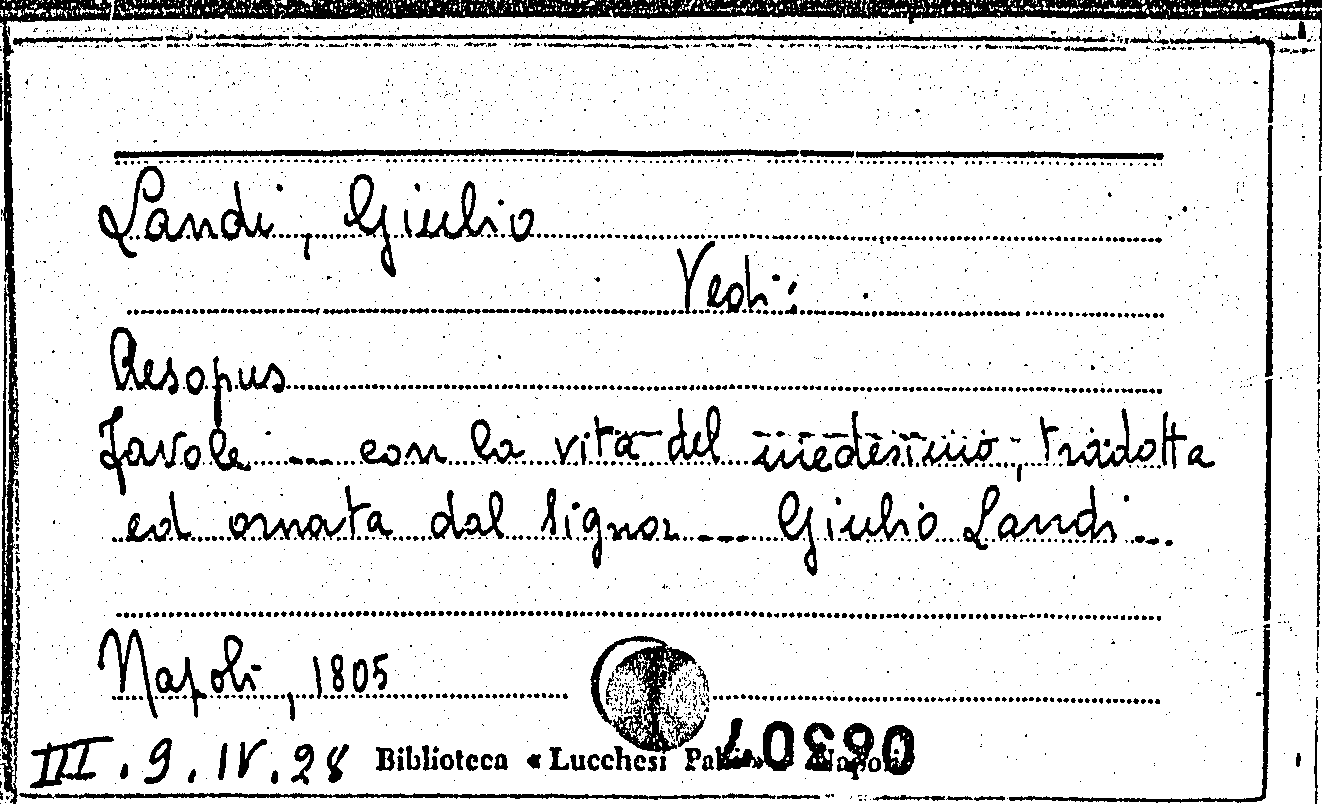 Landi, Giulio
Vedi:
Aesopus
Favole --- con la vita del medesimo, tradotta
ed ornata dal signor --- Giulio Landi ---
Napoli, 1805
III.9.IV.28 Biblioteca « Lucchesi Palli» Napoli